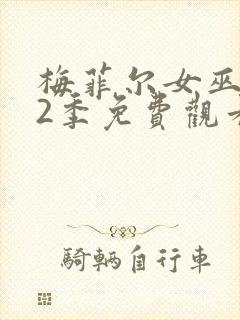 梅菲尔女巫
2季免費觀看
騎輛自行車